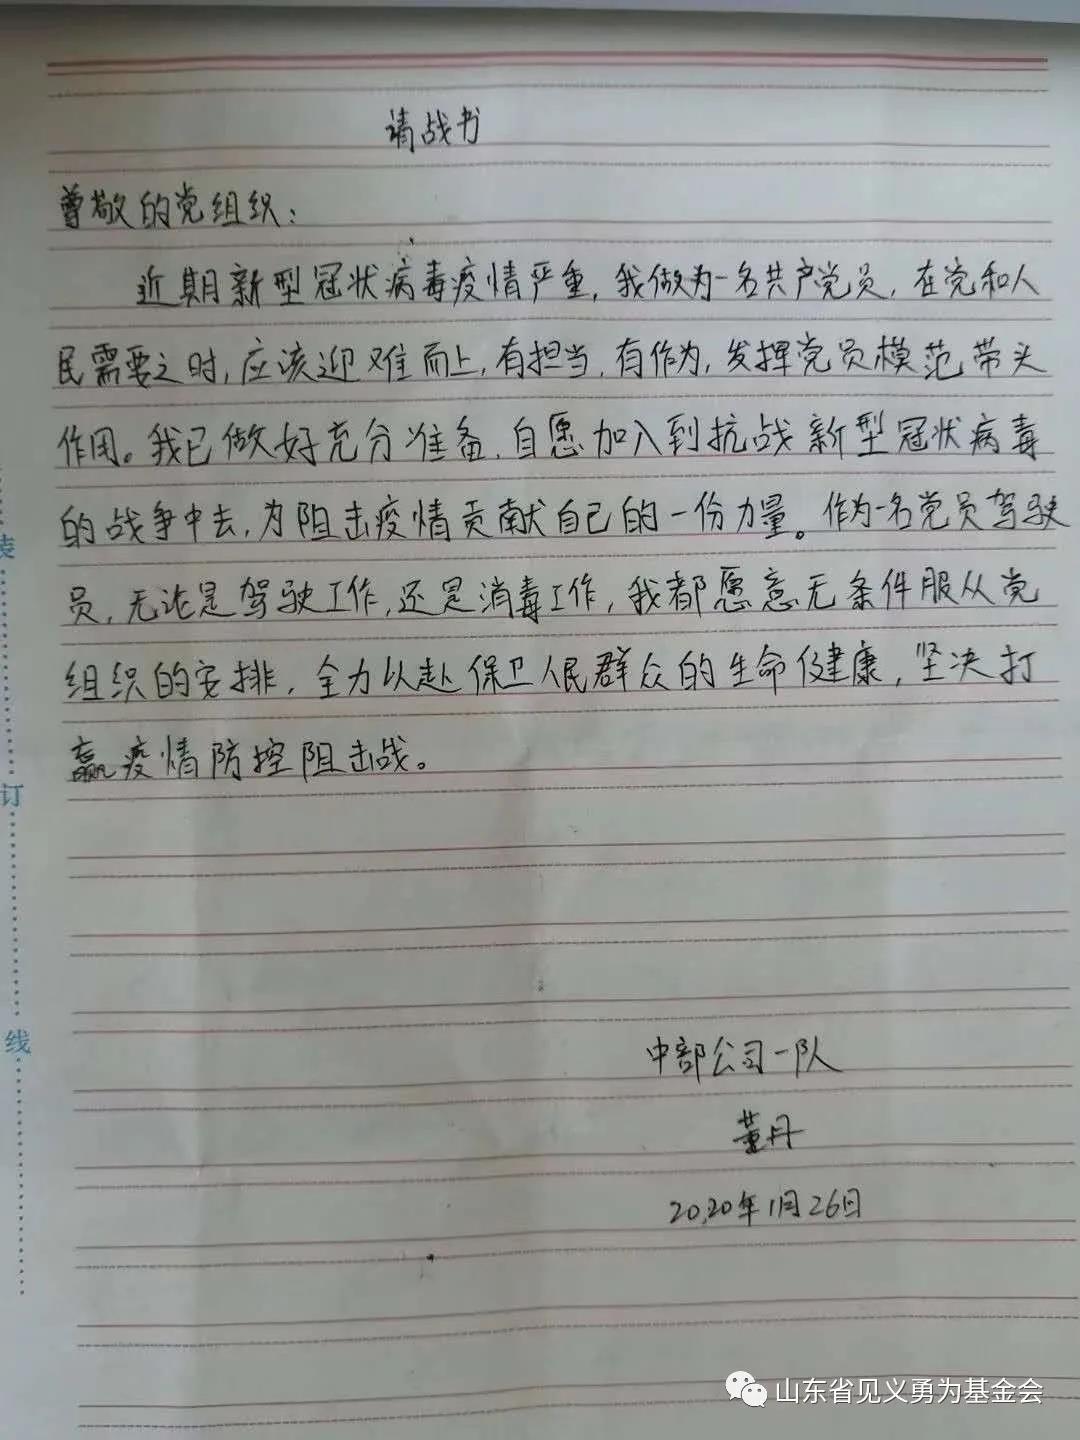 请战书
尊敬的党组织：
近期新型冠状病毒疫情严重，我做为一名共产党员，在党和人
民需要之时，应该迎难而上，有担当，有作为，发挥党员模范带头
作用。我已做好充分准备，自愿加入到抗战新型冠状病毒
的战争中去，为阻击疫情贡献自己的一份力量。作为一名党员驾驶
员，无论是驾驶工作，还是消毒工作，我都愿意无条件服从党
组织的安排，全力以赴保卫人民群众的生命健康，坚决打
赢疫情防控阻击战。
中部公司一队
董丹
2020年1月26日
装
订
线
山东省见义勇为基金会